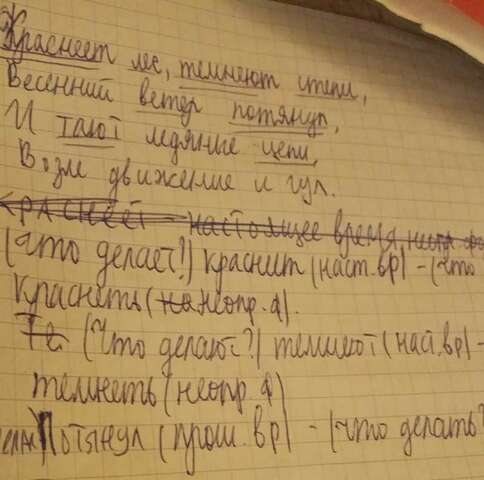 Краснеет лес, темнеют степи,
Весенний ветер потянул,
И тают ледяные цепи,
Возле движение и гул.
Краснеет настоящее время,
(Что делает?) краснит (наст.вр) - (что
Краснеть (на неопр.ф).
Те. (Что делают?) темнеют (наст.вр) -
темнеть (неопр.ф)
Потянул (прош.вр) - (что делать?